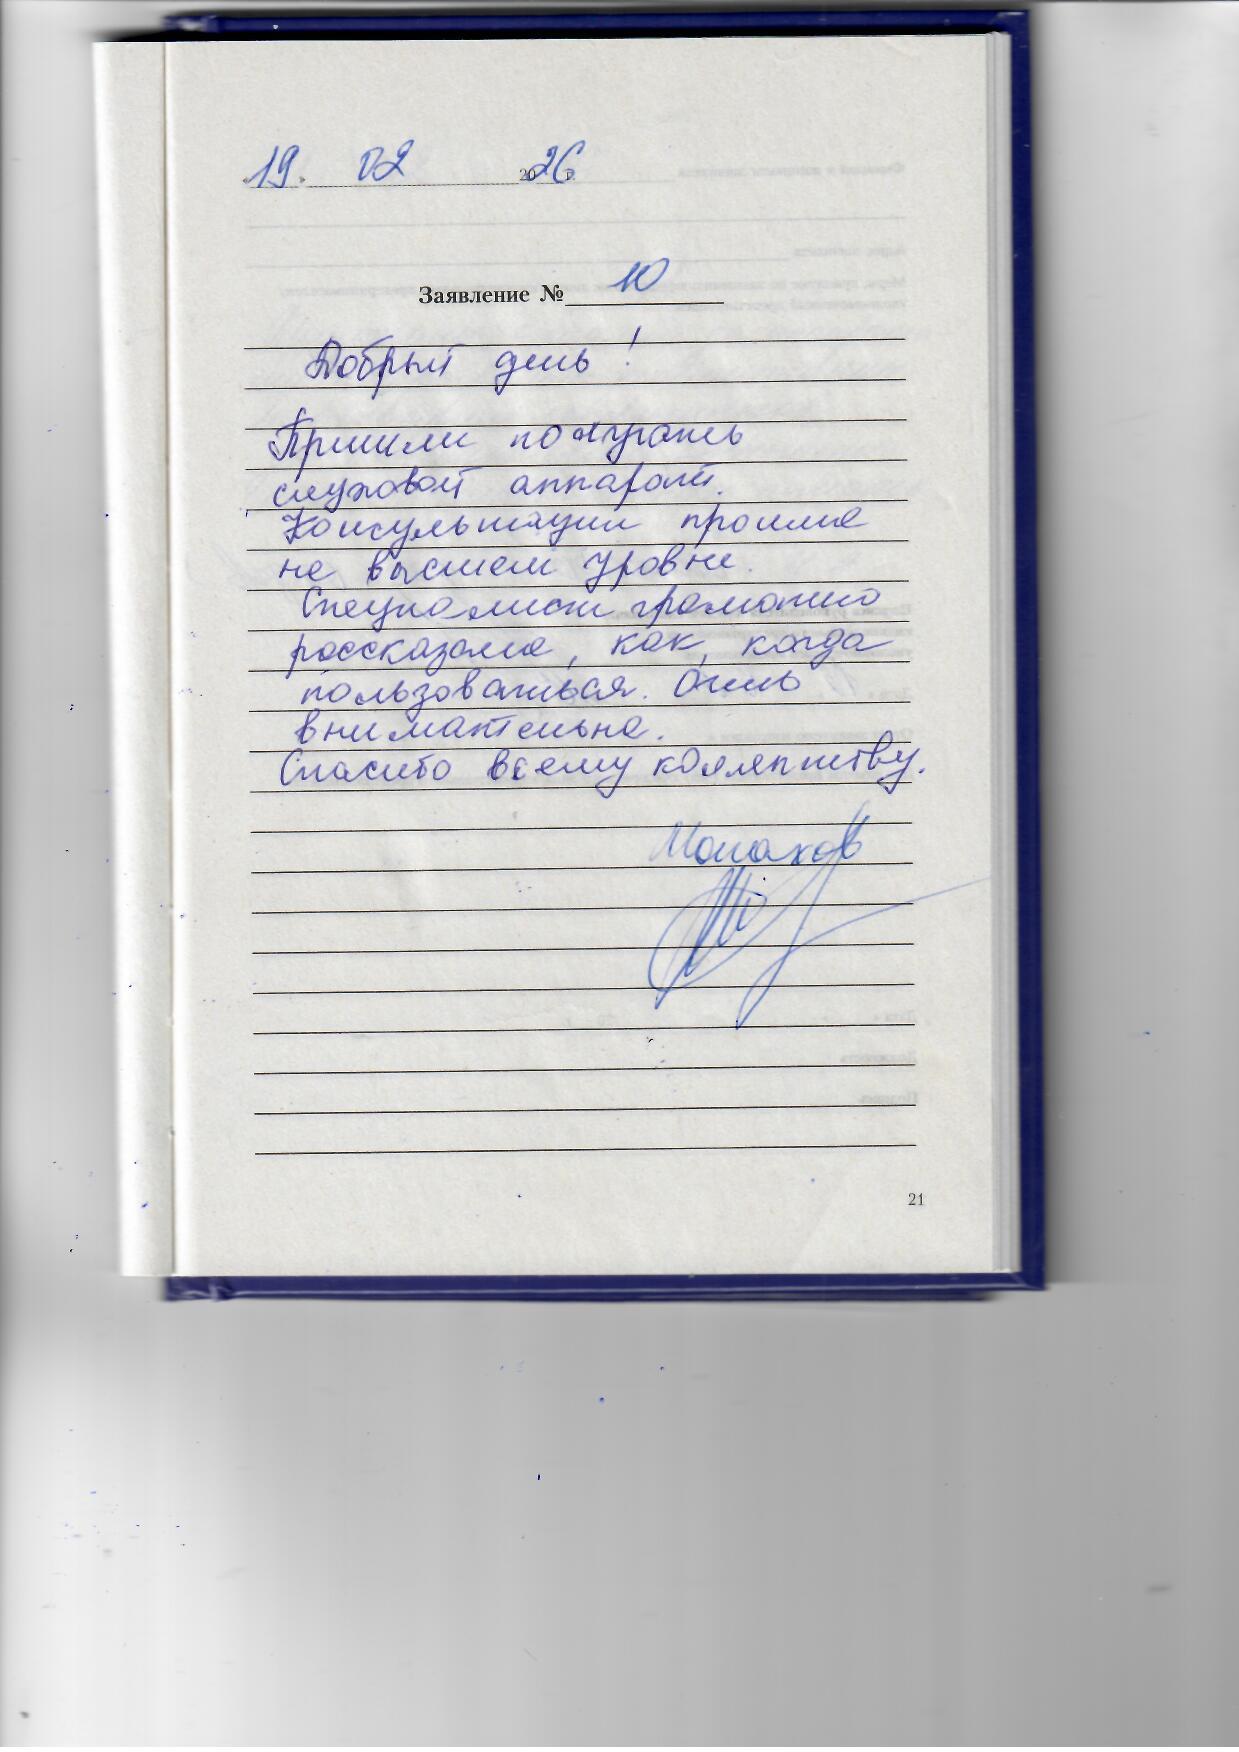 «19» 02 2026 г.
Заявление № 10
Добрый день!
Пришли получать
слуховой аппарат.
Консультации прошла
на высшем уровне.
Специалист грамотно
рассказала, как, когда
пользоваться. Очень
внимательна.
Спасибо всему коллективу.
Монахов
21